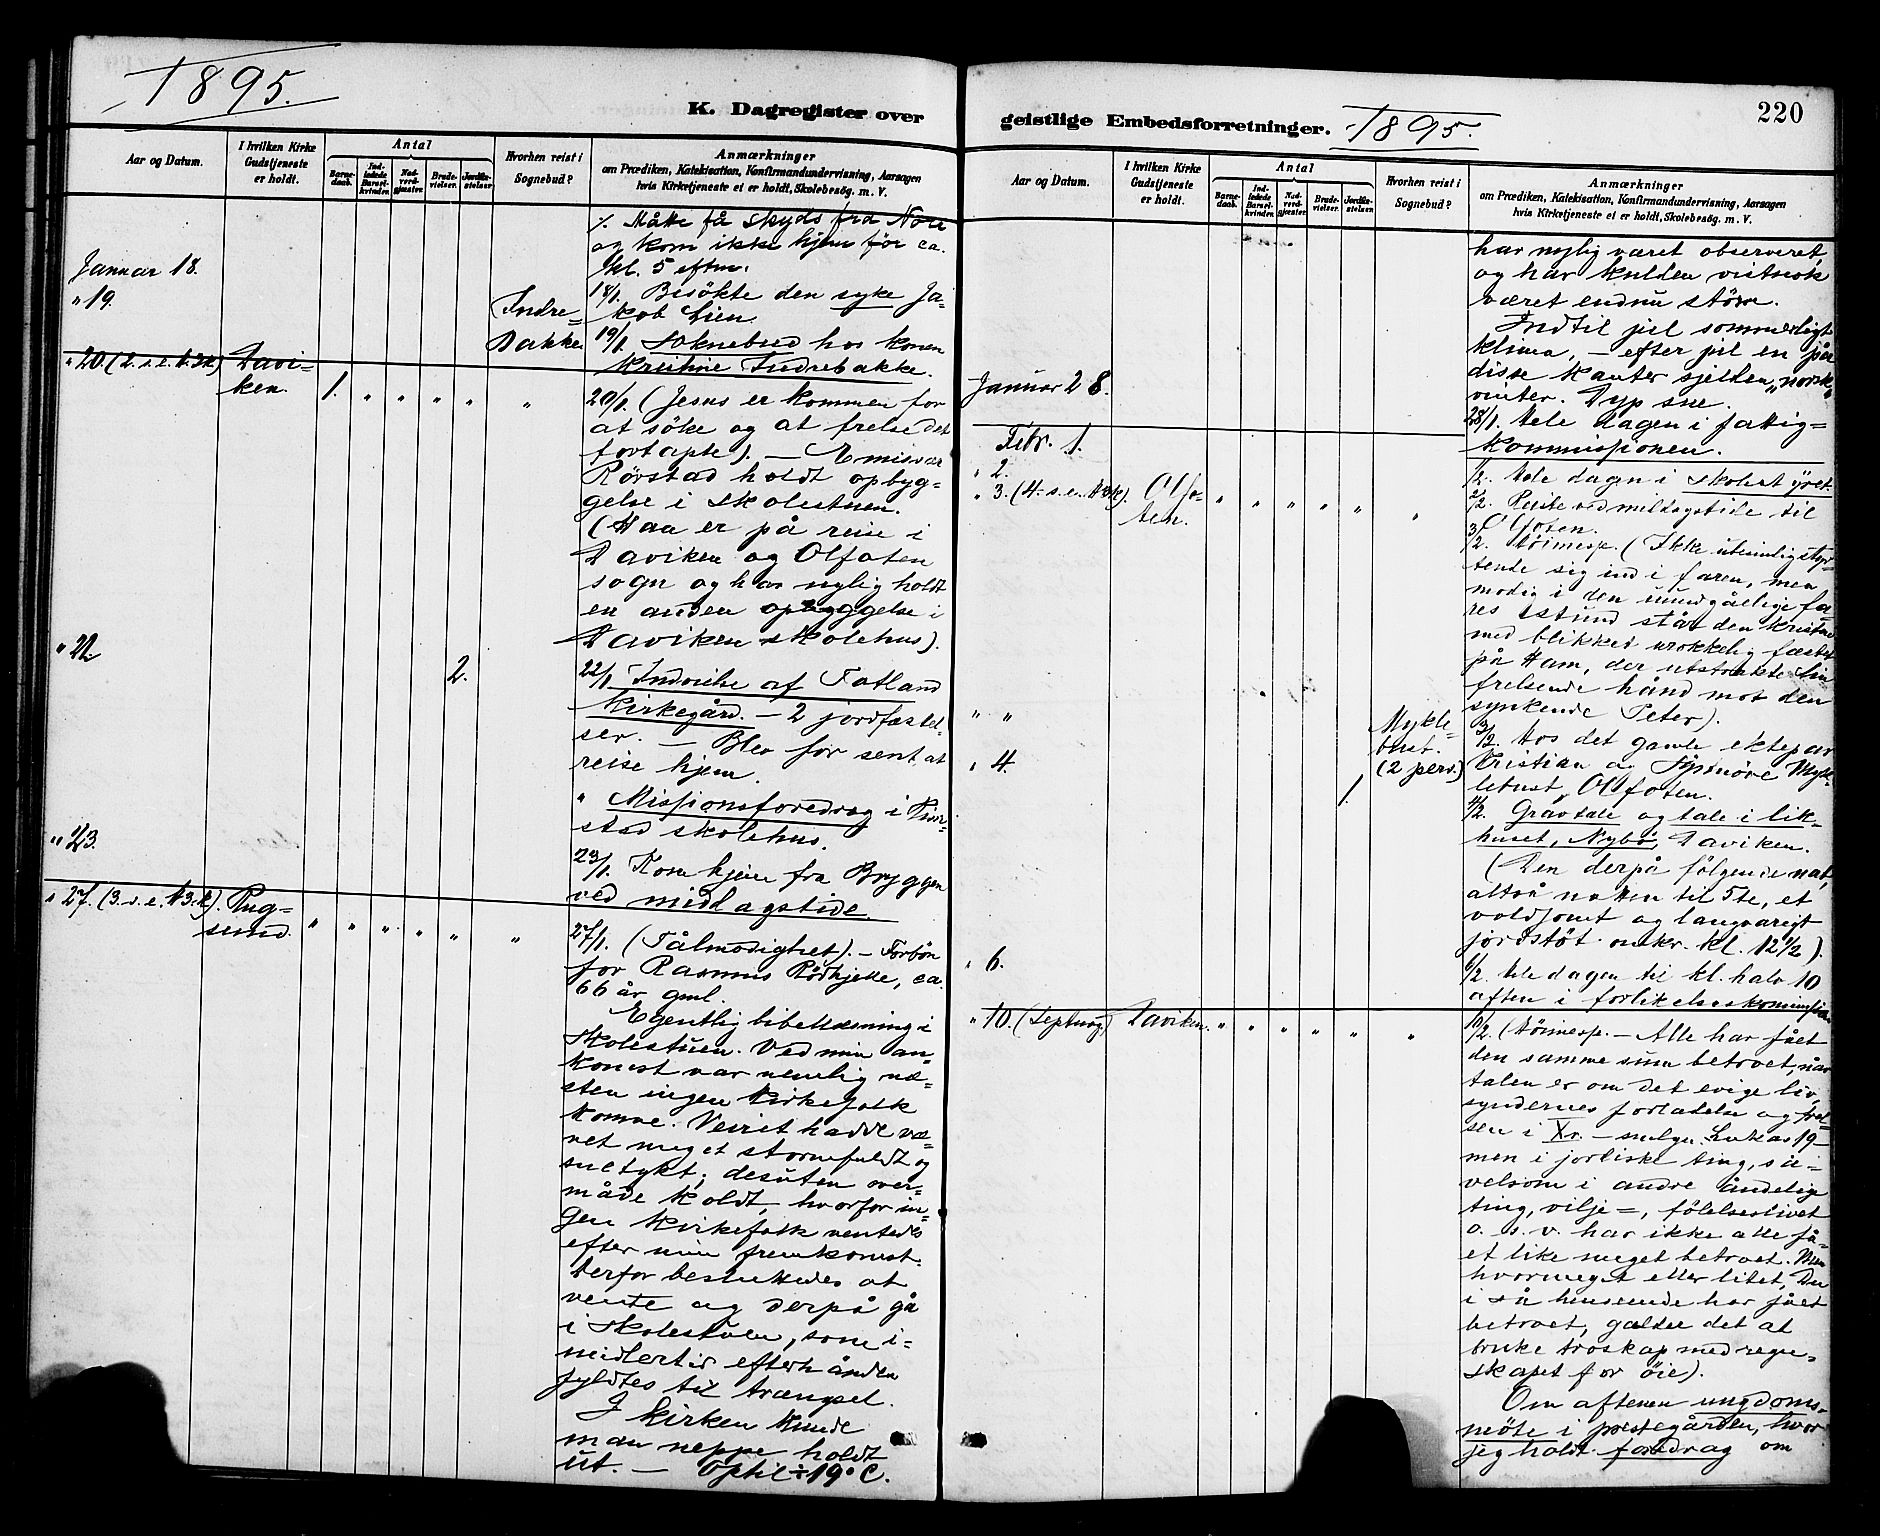 1895.
K. Dagregister over
Aar og Datum.
I hvilken Kirke Gudstjeneste er holdt.
Antal
Barnedaab.
Indledede Barselkvinder.
Nadverdgjæster.
Brudevielser.
Jordfæstelser.
Hvorhen reist i Sognebud?
Anmærkninger
om Prædiken, Katekisation, Konfirmandundervisning, Aarsagen
hvis Kirketjeneste et er holdt, Skolebesøg. m. V.
Måtte få skyds fra Nore
og kom ikke hjem før ca.
kl. 5 efterm.
Januar 18.
18/1. Besökte den syke Ja=
kob Lien.
" 19.
Indre=
Bakke
19/1. Soknebud hos konen
Indrebakke.
" 20. (2. s. e. H3k)
Davi=
ken.
1. " " " " "
20/1. (Jesus er kommen for
at söke og at frelse det
fortapte). – Emissær
Rörstad holdt opbyg=
gelse i skolestuen.
(Han er på reise i
Daviken og Olfoten
sogn og har nylig holdt
en anden opbyggelse i
Daviken skolehus).
" 22.
2.
22/1 Indvielse af Totland
Kirkegård. – 2 jordfæstel=
ser. – Blev for sent at
reise hjem.
" Missionsforedrag i
stad skolehus.
" 23.
23/1. Kom hjem fra Bryggen
ved midagstide.
" 27. (3. s. e. H3.k).
Rug=
sund.
" " " " " "
27/1. (Tålmodighet). – Forbön
for Rasmus Rödkjelle, ca.
66 år gml.
Egentlig bibellæsning i
Skolestuen. Ved min an=
komst var nemlig næ=
sten ingen kirkefolk
komne. Veiret hadde væ=
ret meget stormfuldt og
snetykt; desuten over=
måde koldt, hvorfor in=
gen kirkefolk ventedes
efter min fremkomst.
Derfor besluttedes at
vente og derpå gå
i Skolestuen, som i=
midlertid efterhånden
fyldtes til trængsel.
I kirken kunde
man neppe holdt
ut. – Optil ÷ 19° C.
geistlige Embedsforretninger.
1895.
220
Aar og Datum.
I hvilken Kirke Gudstjeneste er holdt.
Antal
Barnedaab.
Indledede Barselkvinder.
Nadverdgjæster.
Brudevielser.
Jordfæstelser.
Hvorhen reist i Sognebud?
Anmærkninger
om Prædiken, Katekisation, Konfirmandundervisning, Aarsagen
hvis Kirketjeneste et er holdt, Skolebesøg. m. V.
har nylig været observeret,
og har kulden vistnok
været endnu större.
Indtil jul sommerligt
klima, – efter jul en på
disse kanter sjelden "norsk"
vinter. Dyp sne.
Januar 28.
28/1. Hele dagen i fattig=
kommissionen.
Febr. 1.
1/2. Hele dagen i skolestyret.
" 2.
2/2. Reiste ved middagstide til
Olfoten.
" 3. (4. s. e. H3k).
Olfo=
ten.
" " " " " "
3/2. Höimesse. (Ikke
sig ind i faren, men
modig i den uundgåelige fa=
res stund står den kristne
med blikket urokkelig fæstet
på Ham, der utstrakte sin
frelsende hånd mot den
synkende Peter).
" "
Mykle=
bust.
(2 pers.)
3/2. Hos det gamle ektepar
Kristian og Synnöve Myk=
lebust, Olfoten.
" 4.
1.
4/2. Gravtale og tale i lik=
huset, Nybö, Daviken.
(Den derpå fölgende nat,
altså natten til 5te, et
voldsomt og langvarigt
jordstöt omkr. kl. 12 1/2).
" 6.
6/2. Hele dagen til kl. halv 10
aften i forlikelseskommission
" 10. (Septuag)
Daviken.
" " " " " "
10/2. (Höimesse. – Alle har fået
den samme sum betroet, når
talen er om det evige liv,
syndernes forlatelse og frel=
sen i Xr. – smlgn. Lukas 19 –
men i jordiske ting, så=
velsom i andre åndelige
ting, vilje=, fölelseslivet
o. s. v. har ikke alle få=
et like meget betroet. Men
hvor meget eller litet, Du
i så henseende har fået
betroet, gælder det at
bruke troskap med regn=
skapet for öie).
Om aftenen ungdoms=
möte i prestegården, hvor
jeg holdt foredrag om